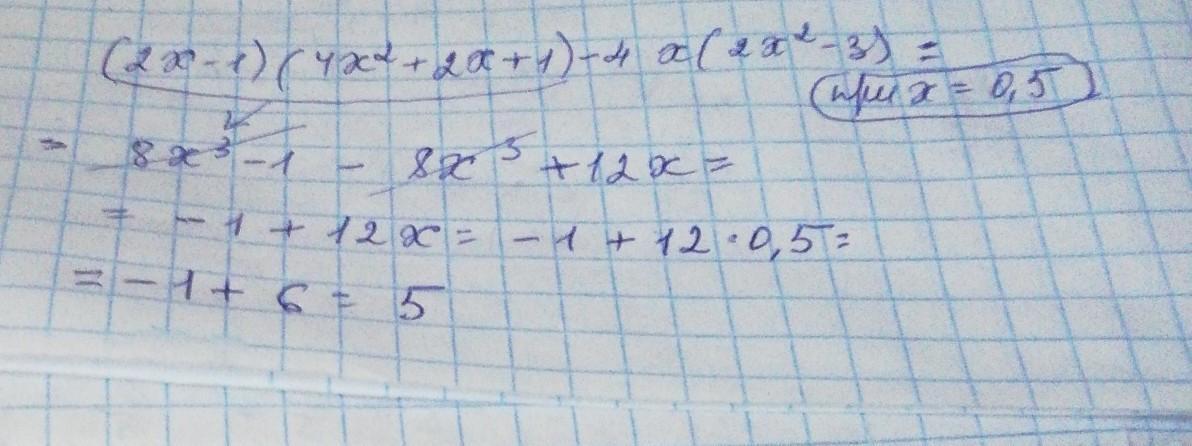 (2x-1)(4x²+2x+1)-4x(2x²-3)=
при x=0,5
= 8x³-1 - 8x³ +12x=
= -1 + 12x = -1 + 12·0,5=
= -1 + 6 = 5